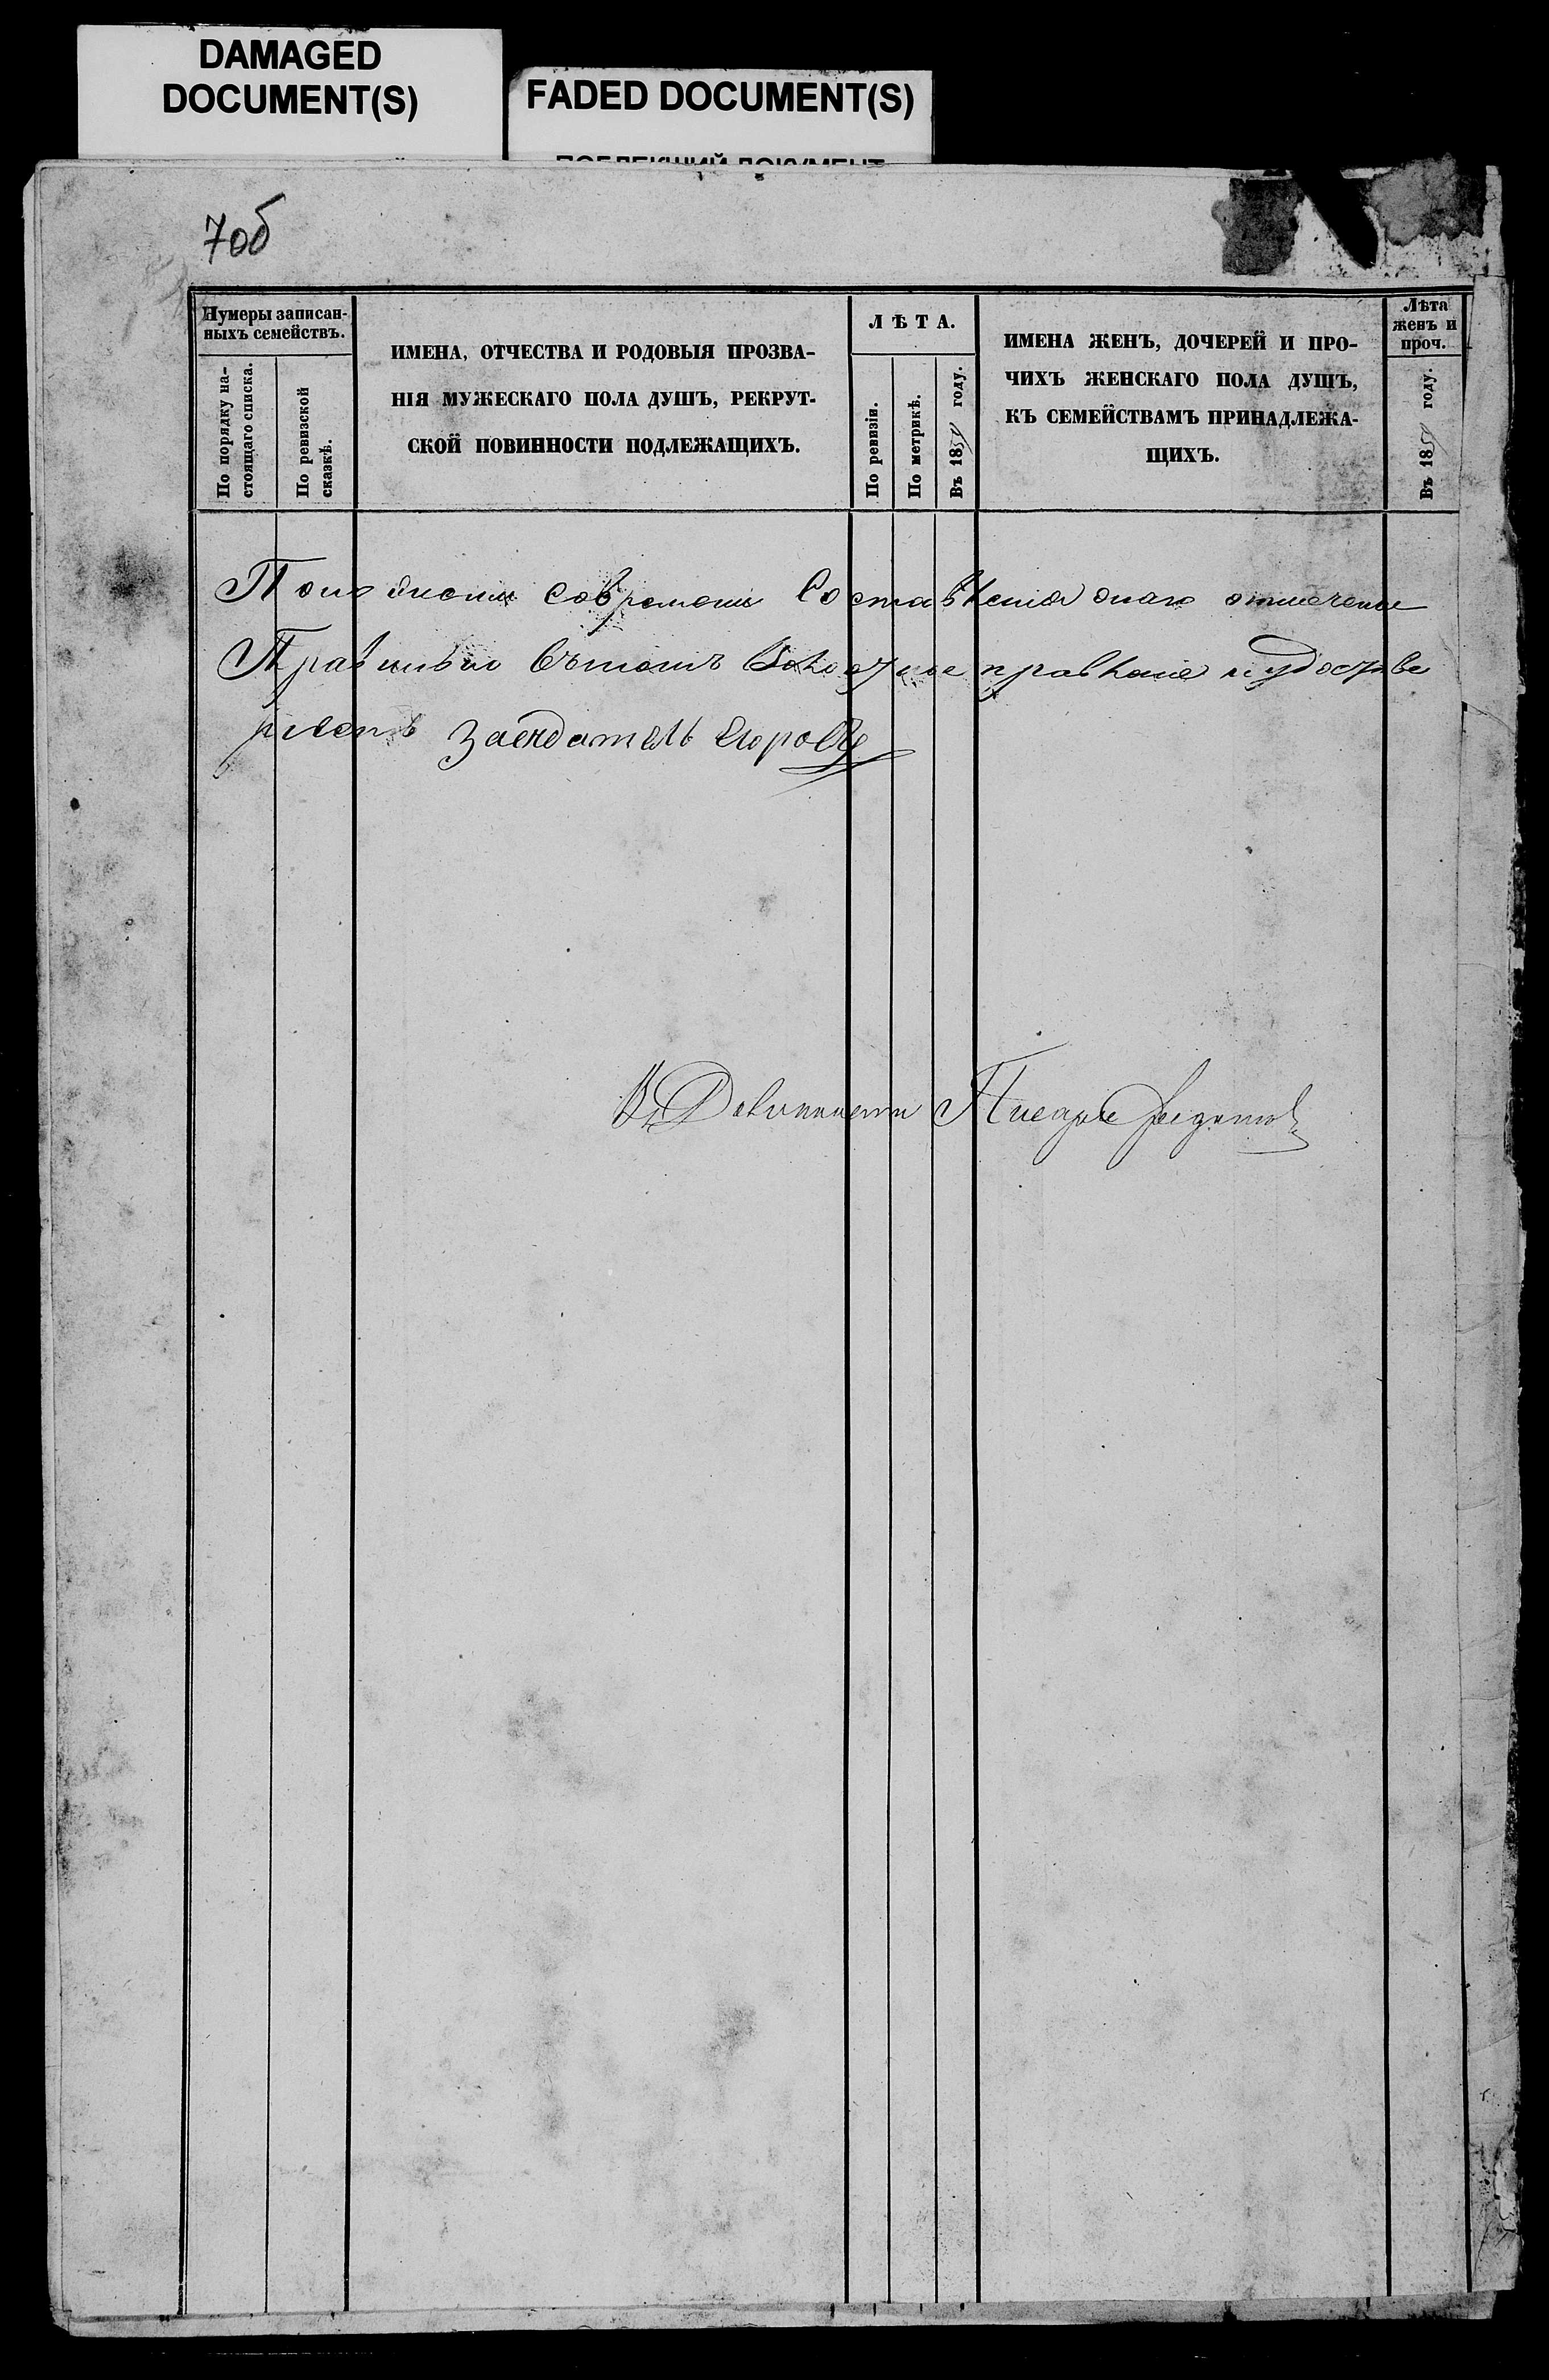 DAMAGED
DOCUMENT(S)
FADED DOCUMENT(S)
70б
Нумеры записан-
ныхъ семействъ.
По порядку на-
стоящаго списка.
По ревизской
сказкѣ.
ИМЕНА, ОТЧЕСТВА И РОДОВЫЯ ПРОЗВА-
НІЯ МУЖЕСКАГО ПОЛА ДУШЪ, РЕКРУТ-
СКОЙ ПОВИННОСТИ ПОДЛЕЖАЩИХЪ.
ЛѢТА.
По ревизіи.
По метрикѣ.
Въ 185 году.
ИМЕНА ЖЕНЪ, ДОЧЕРЕЙ И ПРО-
ЧИХЪ ЖЕНСКАГО ПОЛА ДУШЪ,
КЪ СЕМЕЙСТВАМЪ ПРИНАДЛЕЖА-
ЩИХЪ.
Лѣта
женъ и
проч.
Въ 185 году.
современи Составленія онаго отмечены
Правильно вътомъ Волостное правленіе иудостове
ряетъ Засѣдатель
В Должности Писаря